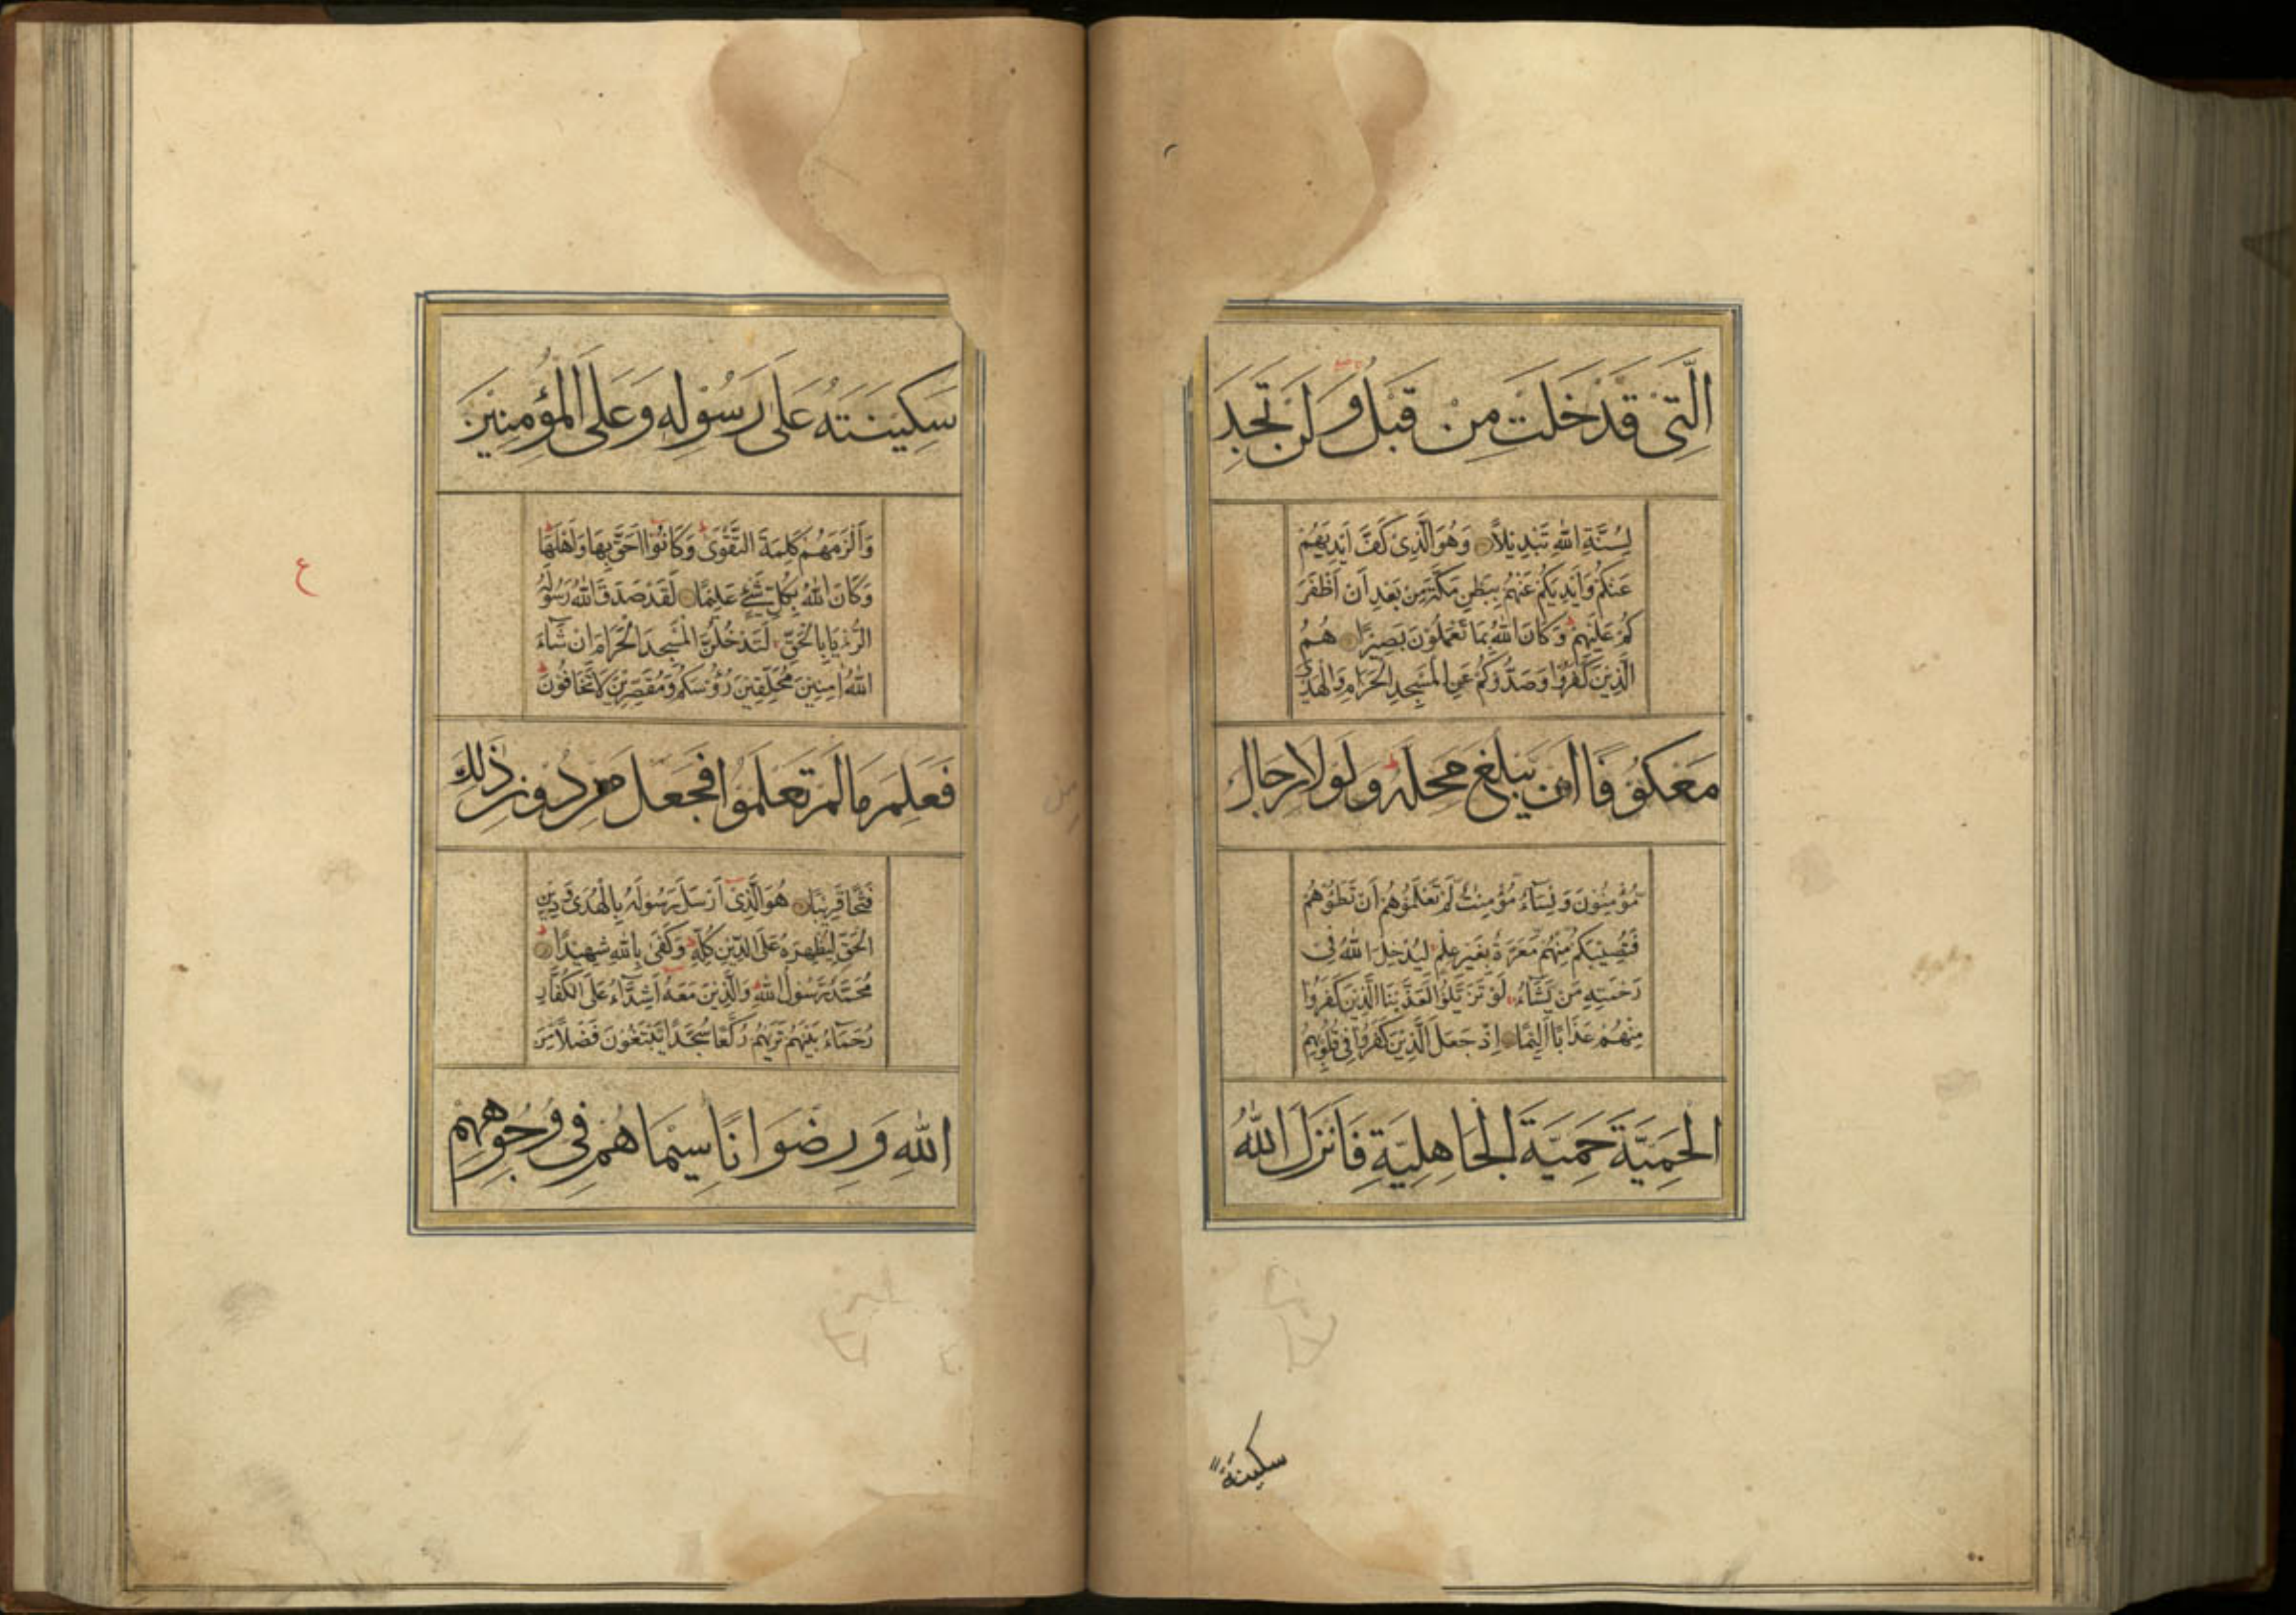 الَّتِیْ قَدْ خَلَتْ مِنْ قَبْلُ وَلَنْ تَجِدَ
لِسُنَّةِ اللّٰهِ تَبْدِیْلاً وَهُوَ الَّذِیْ كَفَّ اَیْدِیَهُمْ
عَنْكُمْ وَاَیْدِیَكُمْ عَنْهُمْ بِبَطْنِ مَكَّةَ مِنْ بَعْدِ اَنْ اَظْفَرَ
كُمْ عَلَیْهِمْ وَكَانَ اللّٰهُ بِمَا تَعْمَلُوْنَ بَصِیْرًا هُمُ
الَّذِیْنَ كَفَرُوْا وَصَدُّوْكُمْ عَنِ الْمَسْجِدِ الْحَرَامِ وَالْهَدْیَ
مَعْكُوْفًا اَنْ یَّبْلُغَ مَحِلَّهٗ وَلَوْلَا رِجَالٌ
مُّؤْمِنُوْنَ وَنِسَآءٌ مُّؤْمِنٰتٌ لَمْ تَعْلَمُوْهُمْ اَنْ تَطَئُوْهُمْ
فَتُصِیْبَكُمْ مِنْهُمْ مَعَرَّةٌ بِغَیْرِ عِلْمٍ لِیُدْخِلَ اللّٰهُ فِیْ
رَحْمَتِهٖ مَنْ یَّشَآءُ لَوْ تَزَیَّلُوْا لَعَذَّبْنَا الَّذِیْنَ كَفَرُوْا
مِنْهُمْ عَذَابًا اَلِیْمًا اِذْ جَعَلَ الَّذِیْنَ كَفَرُوْا فِیْ قُلُوْبِهِمُ
الْحَمِیَّةَ حَمِیَّةَ الْجَاهِلِیَّةِ فَاَنْزَلَ اللّٰهُ
سكینتهٗ
سَكِیْنَتَهٗ عَلٰی رَسُوْلِهٖ وَعَلَی الْمُؤْمِنِیْنَ
وَاَلْزَمَهُمْ كَلِمَةَ التَّقْوٰی وَكَانُوْا اَحَقَّ بِهَا وَاَهْلَهَا
وَكَانَ اللّٰهُ بِكُلِّ شَیْءٍ عَلِیْمًا لَقَدْ صَدَقَ اللّٰهُ رَسُوْلَهُ
الرُّءْیَا بِالْحَقِّ لَتَدْخُلُنَّ الْمَسْجِدَ الْحَرَامَ اِنْ شَآءَ
اللّٰهُ اٰمِنِیْنَ مُحَلِّقِیْنَ رُءُوْسَكُمْ وَمُقَصِّرِیْنَ لَا تَخَافُوْنَ
فَعَلِمَ مَا لَمْ تَعْلَمُوْا فَجَعَلَ مِنْ دُوْنِ ذٰلِكَ
فَتْحًا قَرِیْبًا هُوَ الَّذِیْ اَرْسَلَ رَسُوْلَهٗ بِالْهُدٰی وَدِیْنِ
الْحَقِّ لِیُظْهِرَهٗ عَلَی الدِّیْنِ كُلِّهٖ وَكَفٰی بِاللّٰهِ شَهِیْدًا
مُحَمَّدٌ رَّسُوْلُ اللّٰهِ وَالَّذِیْنَ مَعَهٗ اَشِدَّآءُ عَلَی الْكُفَّارِ
رُحَمَآءُ بَیْنَهُمْ تَرٰیهُمْ رُكَّعًا سُجَّدًا یَّبْتَغُوْنَ فَضْلًا مِّنَ
اللّٰهِ وَرِضْوَانًا سِیْمَاهُمْ فِیْ وُجُوْهِهِمْ
ع